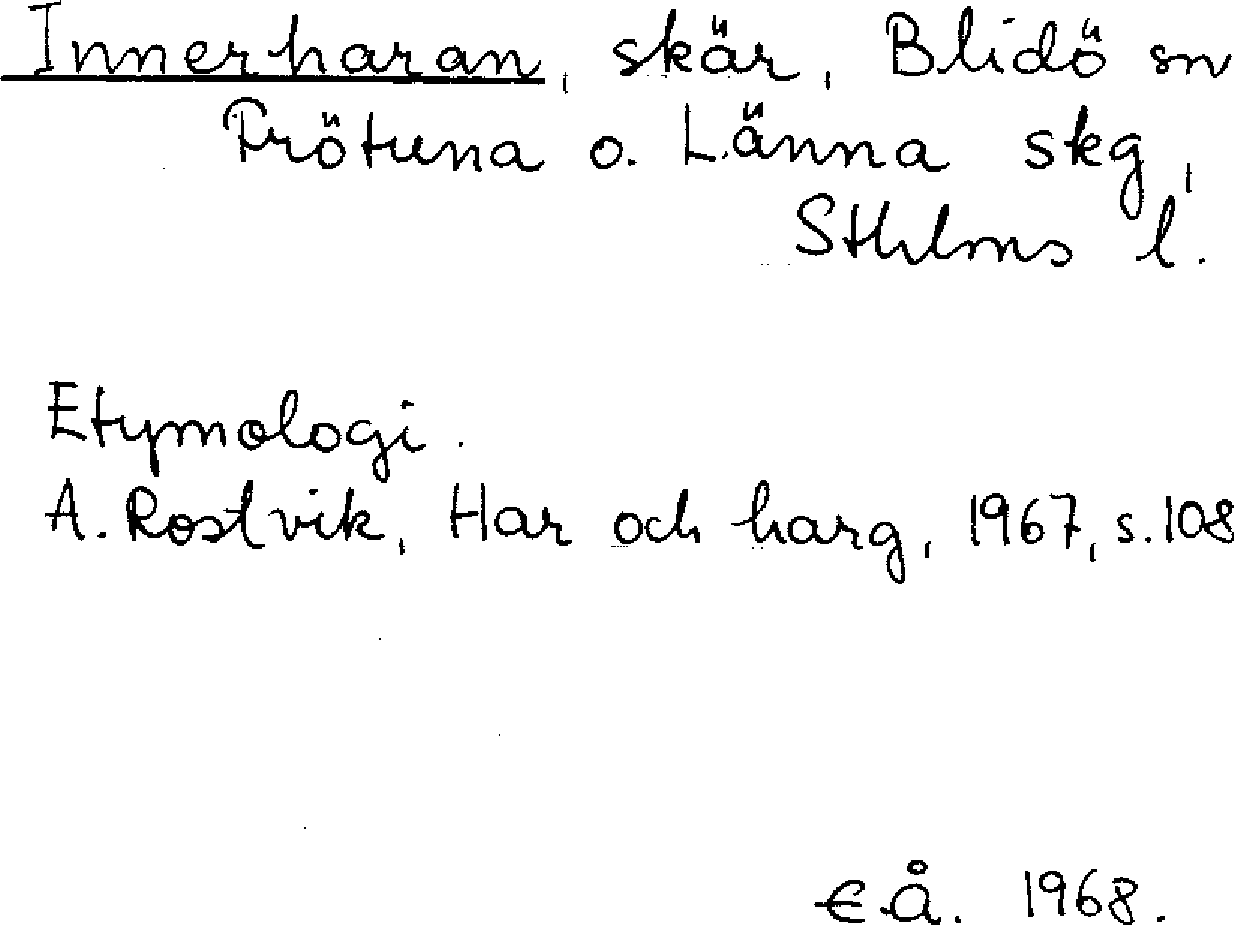 Innerharan, skär, Blidö sn
Frötuna o. Länna skg,
Sthlms l.
Etymologi.
A. Rostvik, Har och harg, 1967, s. 108
E Å. 1968.